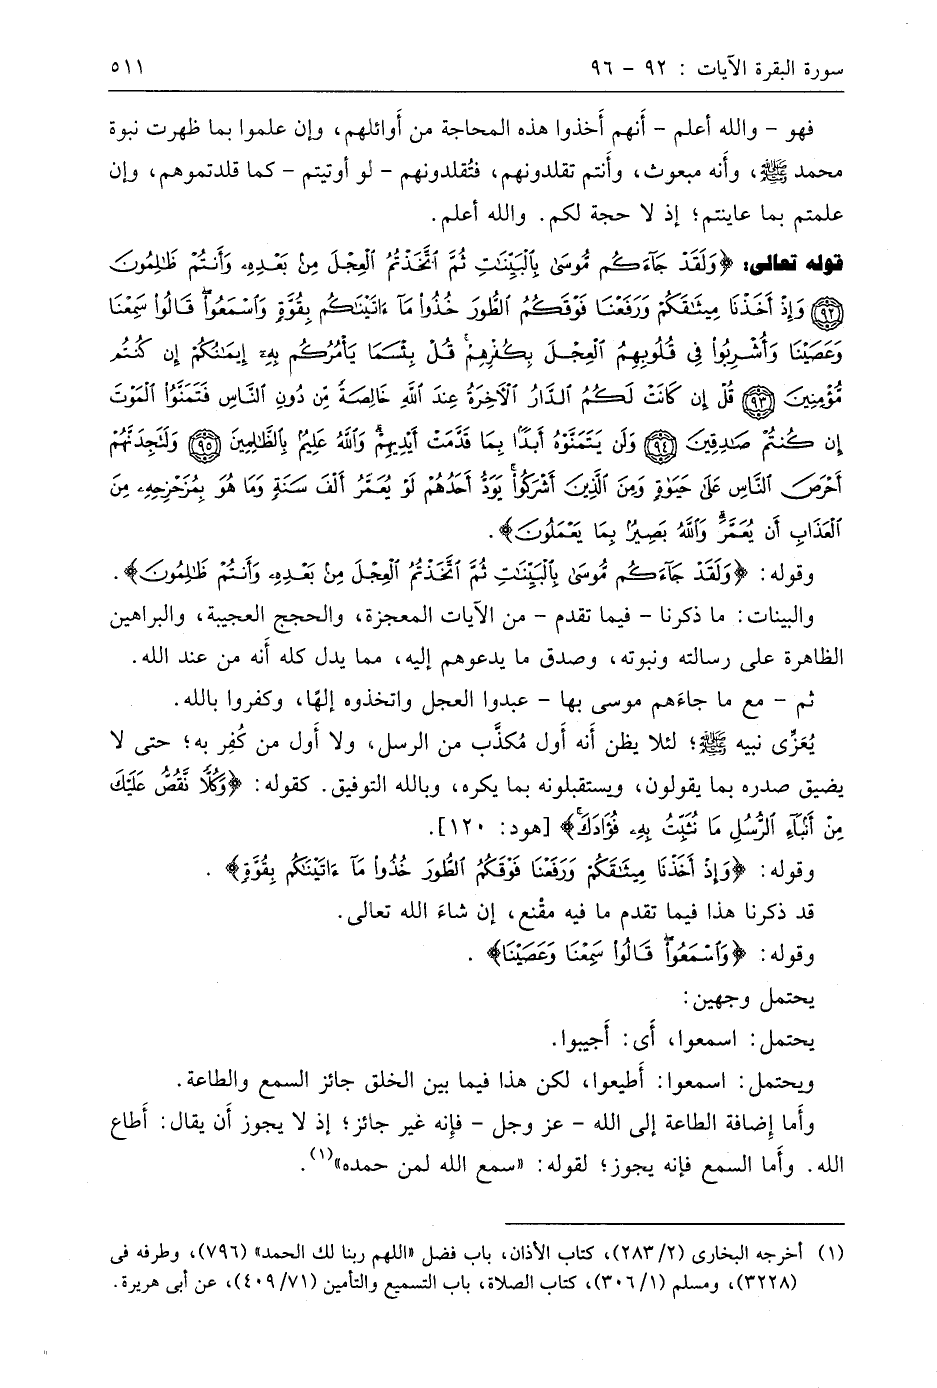 سورة البقرة الآيات : ٩٢ - ٩٦ ٥١١
فهو - والله أعلم - أنهم أخذوا هذه المحاجة من أوائلهم، وإن علموا بما ظهرت نبوة
محمد ﷺ، وأنه مبعوث، وأنتم تقلدونهم، فتُقلدونهم - لو أوتيتم - كما قلدتموهم، وإن
علمتم بما عاينتم؛ إذ لا حجة لكم. والله أعلم.
قوله تعالى: ﴿وَلَقَدْ جَآءَكُم مُّوسَىٰ بِالْبَيِّنَٰتِ ثُمَّ ٱتَّخَذْتُمُ ٱلْعِجْلَ مِنۢ بَعْدِهِۦ وَأَنتُمْ ظَٰلِمُونَ
(٩٢) وَإِذْ أَخَذْنَا مِيثَٰقَكُمْ وَرَفَعْنَا فَوْقَكُمُ ٱلطُّورَ خُذُوا۟ مَآ ءَاتَيْنَٰكُم بِقُوَّةٍ وَٱسْمَعُوا۟ۖ قَالُوا۟ سَمِعْنَا
وَعَصَيْنَا وَأُشْرِبُوا۟ فِى قُلُوبِهِمُ ٱلْعِجْلَ بِكُفْرِهِمْۚ قُلْ بِئْسَمَا يَأْمُرُكُم بِهِۦٓ إِيمَٰنُكُمْ إِن كُنتُم
مُّؤْمِنِينَ (٩٣) قُلْ إِن كَانَتْ لَكُمُ ٱلدَّارُ ٱلْأَخِرَةُ عِندَ ٱللَّهِ خَالِصَةً مِّن دُونِ ٱلنَّاسِ فَتَمَنَّوُا۟ ٱلْمَوْتَ
إِن كُنتُمْ صَٰدِقِينَ (٩٤) وَلَن يَتَمَنَّوْهُ أَبَدًۢا بِمَا قَدَّمَتْ أَيْدِيهِمْۗ وَٱللَّهُ عَلِيمٌۢ بِٱلظَّٰلِمِينَ (٩٥) وَلَتَجِدَنَّهُمْ
أَحْرَصَ ٱلنَّاسِ عَلَىٰ حَيَوٰةٍ وَمِنَ ٱلَّذِينَ أَشْرَكُوا۟ۚ يَوَدُّ أَحَدُهُمْ لَوْ يُعَمَّرُ أَلْفَ سَنَةٍ وَمَا هُوَ بِمُزَحْزِحِهِۦ مِنَ
ٱلْعَذَابِ أَن يُعَمَّرَۗ وَٱللَّهُ بَصِيرٌۢ بِمَا يَعْمَلُونَ﴾.
وقوله: ﴿وَلَقَدْ جَآءَكُم مُّوسَىٰ بِالْبَيِّنَٰتِ ثُمَّ ٱتَّخَذْتُمُ ٱلْعِجْلَ مِنۢ بَعْدِهِۦ وَأَنتُمْ ظَٰلِمُونَ﴾.
والبينات: ما ذكرنا - فيما تقدم - من الآيات المعجزة، والحجج العجيبة، والبراهين
الظاهرة على رسالته ونبوته، وصدق ما يدعوهم إليه، مما يدل كله أنه من عند الله.
ثم - مع ما جاءَهم موسى بها - عبدوا العجل واتخذوه إلهًا، وكفروا بالله.
يُعَزِّى نبيه ﷺ؛ لئلا يظن أنه أول مُكذَّب من الرسل، ولا أول من كُفِر به؛ حتى لا
يضيق صدره بما يقولون، ويستقبلونه بما يكره، وبالله التوفيق. كقوله: ﴿وَكُلًّا نَّقُصُّ عَلَيْكَ
مِنْ أَنۢبَآءِ ٱلرُّسُلِ مَا نُثَبِّتُ بِهِۦ فُؤَادَكَۚ﴾ [هود: ١٢٠].
وقوله: ﴿وَإِذْ أَخَذْنَا مِيثَٰقَكُمْ وَرَفَعْنَا فَوْقَكُمُ ٱلطُّورَ خُذُوا۟ مَآ ءَاتَيْنَٰكُم بِقُوَّةٍ﴾ .
قد ذكرنا هذا فيما تقدم ما فيه مقْنع، إن شاءَ الله تعالى.
وقوله: ﴿وَٱسْمَعُوا۟ۖ قَالُوا۟ سَمِعْنَا وَعَصَيْنَا﴾ .
يحتمل وجهين:
يحتمل: اسمعوا، أَى: أَجيبوا.
ويحتمل: اسمعوا: أَطيعوا، لكن هذا فيما بين الخلق جائز السمع والطاعة.
وأَما إِضافة الطاعة إلى الله - عز وجل - فإِنه غير جائز؛ إذ لا يجوز أن يقال: أَطاع
الله. وأَما السمع فإنه يجوز؛ لقوله: «سمع الله لمن حمده»(١).
(١) أخرجه البخارى (٢/ ٢٨٣)، كتاب الأذان، باب فضل «اللهم ربنا لك الحمد» (٧٩٦)، وطرفه فى
(٣٢٢٨)، ومسلم (١/ ٣٠٦)، كتاب الصلاة، باب التسميع والتأمين (٧١/ ٤٠٩)، عن أبى هريرة.